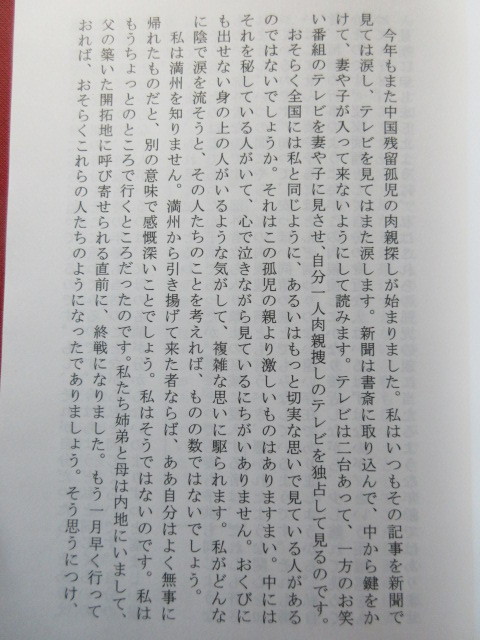 今年もまた中国残留孤児の肉親探しが始まりました。私はいつもその記事を新聞で
見ては涙し、テレビを見てはまた涙します。新聞は書斎に取り込んで、中から鍵をか
けて、妻や子が入って来ないようにして読みます。テレビは二台あって、一方のお笑
い番組のテレビを妻や子に見させ、自分一人肉親捜しのテレビを独占して見るのです。
おそらく全国には私と同じように、あるいはもっと切実な思いで見ている人がある
のではないでしょうか。それはこの孤児の親より激しいものはありますまい。中には
それを秘している人がいて、心で泣きながら見ているにちがいありません。おくびに
も出せない身の上の人がいるような気がして、複雑な思いに駆られます。私がどんな
に陰で涙を流そうと、その人たちのことを考えれば、ものの数ではないでしょう。
私は満州を知りません。満州から引き揚げて来た者ならば、ああ自分はよく無事に
帰れたものだと、別の意味で感慨深いことでしょう。私はそうではないのです。私は
もうちょっとのところで行くところだったのです。私たち姉弟と母は内地にいまして、
父の築いた開拓地に呼び寄せられる直前に、終戦になりました。もう一月早く行って
おれば、おそらくこれらの人たちのようになったでありましょう。そう思うにつけ、